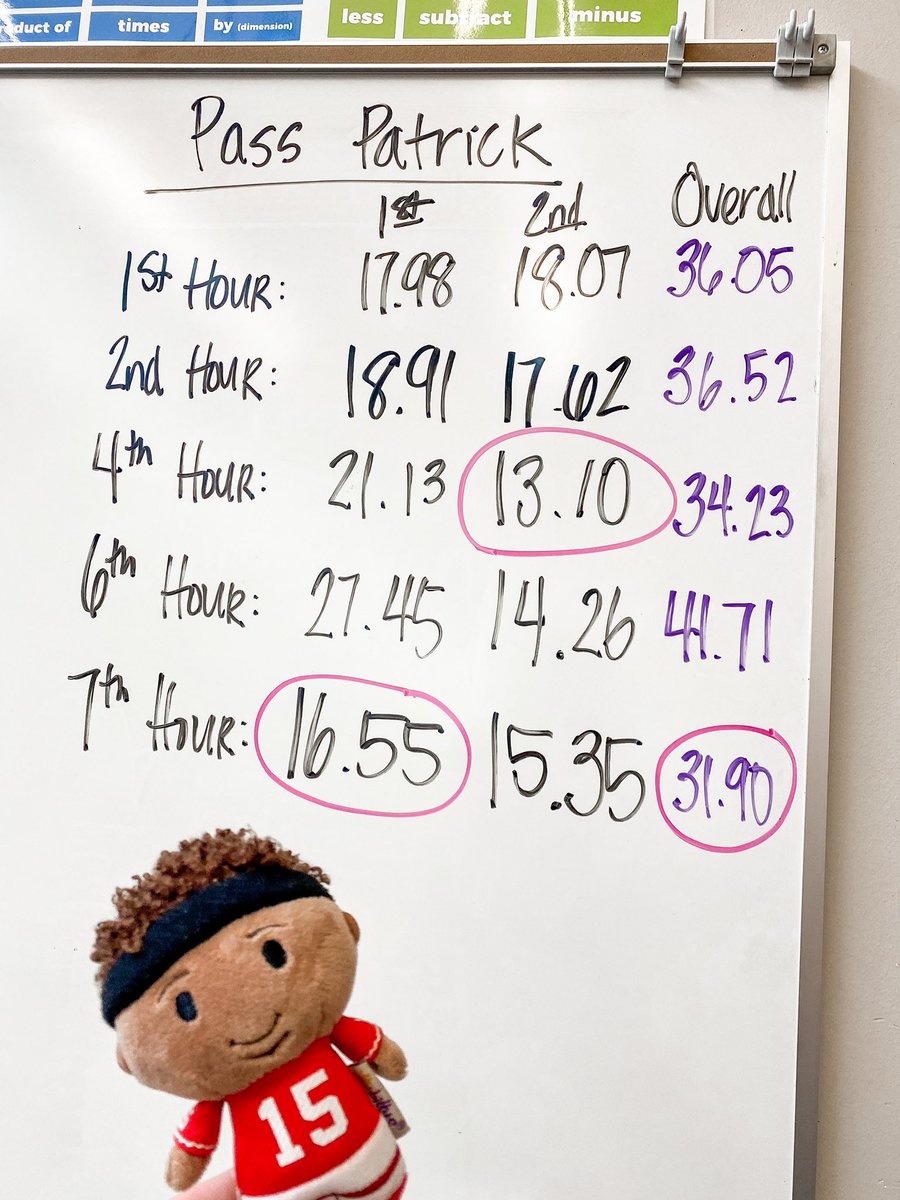 product of times by (dimension) less subtract minus
Pass Patrick
1st 2nd Overall
1st Hour: 17.98 18.07 36.05
2nd Hour: 18.91 17.62 36.52
4th Hour: 21.13 13.10 34.23
6th Hour: 27.45 14.26 41.71
7th Hour: 16.55 15.35 31.90
15